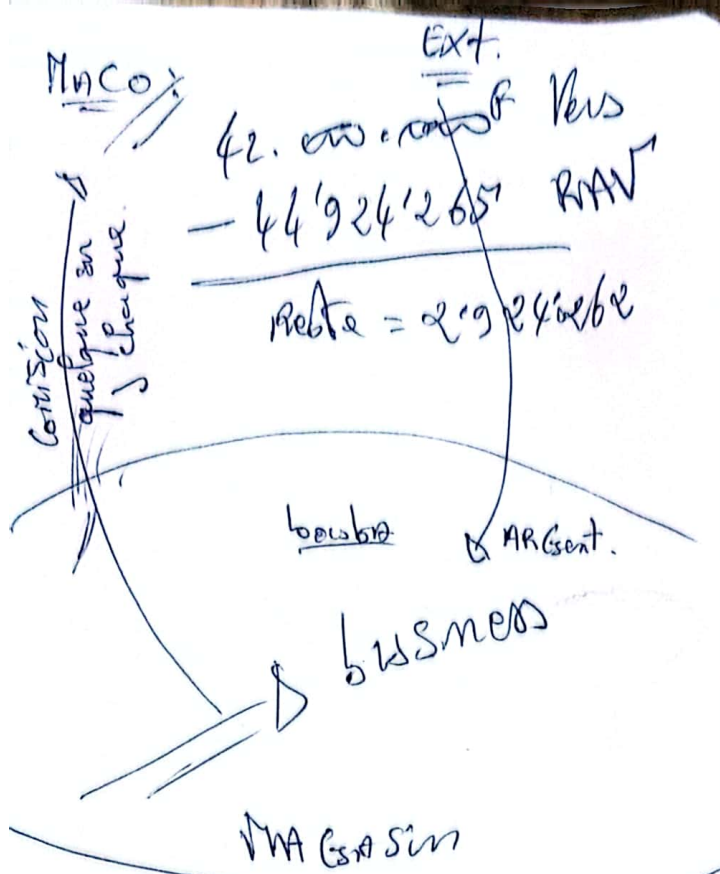 Ext.
MACO
42.000.000F Vers
- 44'924'265 RAV
Reste = 2'924'262
Comision
quelque sn
chaque
ARGent.
bussness
MAGASin